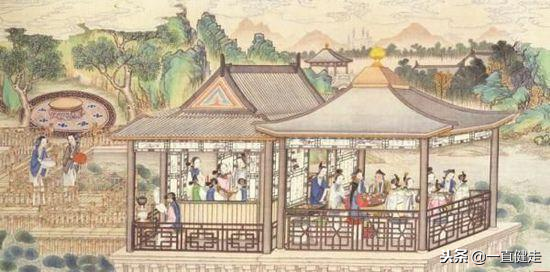 头条@一直健走